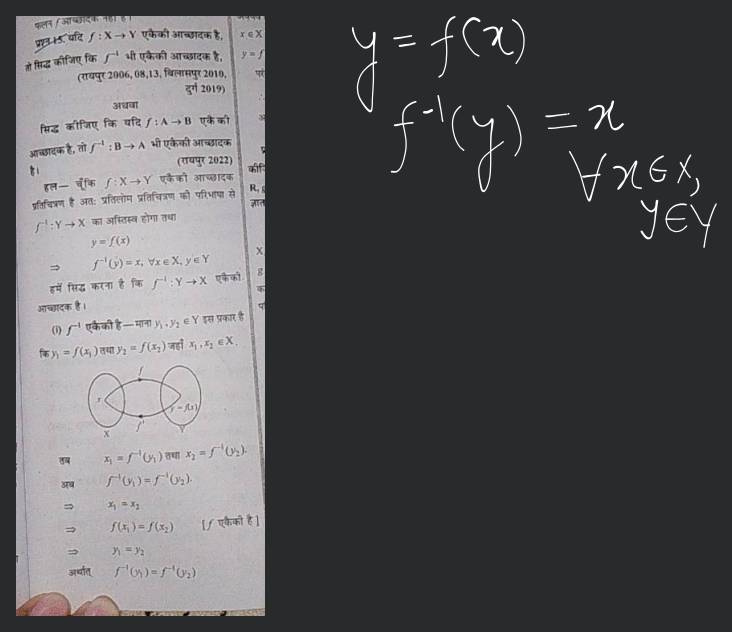 फलन f आच्छादक नहीं है।
प्रश्न 15. यदि f : X → Y एकैकी आच्छादक है,
तो सिद्ध कीजिए कि f⁻¹ भी एकैकी आच्छादक है,
(रायपुर 2006, 08,13, बिलासपुर 2010,
दुर्ग 2019)
अथवा
सिद्ध कीजिए कि यदि f : A → B एकैकी
आच्छादक है, तो f⁻¹ : B → A भी एकैकी आच्छादक
है।
(रायपुर 2022)
हल— चूँकि f : X → Y एकैकी आच्छादक
प्रतिचित्रण है अतः प्रतिलोम प्रतिचित्रण की परिभाषा से
f⁻¹ : Y → X का अस्तित्व होगा तथा
y = f(x)
⇒ f⁻¹(y) = x, ∀x ∈ X, y ∈ Y
हमें सिद्ध करना है कि f⁻¹ : Y → X एकैकी
आच्छादक है।
(i) f⁻¹ एकैकी है—माना y₁, y₂ ∈ Y इस प्रकार है
कि y₁ = f(x₁) तथा y₂ = f(x₂) जहाँ x₁, x₂ ∈ X.
f
x
y = f(x)
f⁻¹
X
Y
तब x₁ = f⁻¹(y₁) तथा x₂ = f⁻¹(y₂).
अब f⁻¹(y₁) = f⁻¹(y₂).
⇒ x₁ = x₂
⇒ f(x₁) = f(x₂) [f एकैकी है]
⇒ y₁ = y₂
अर्थात् f⁻¹(y₁) = f⁻¹(y₂)
x ∈ X
y = f
R,
X
g
y = f(x)
f⁻¹(y) = x
∀ x ∈ X,
y ∈ Y